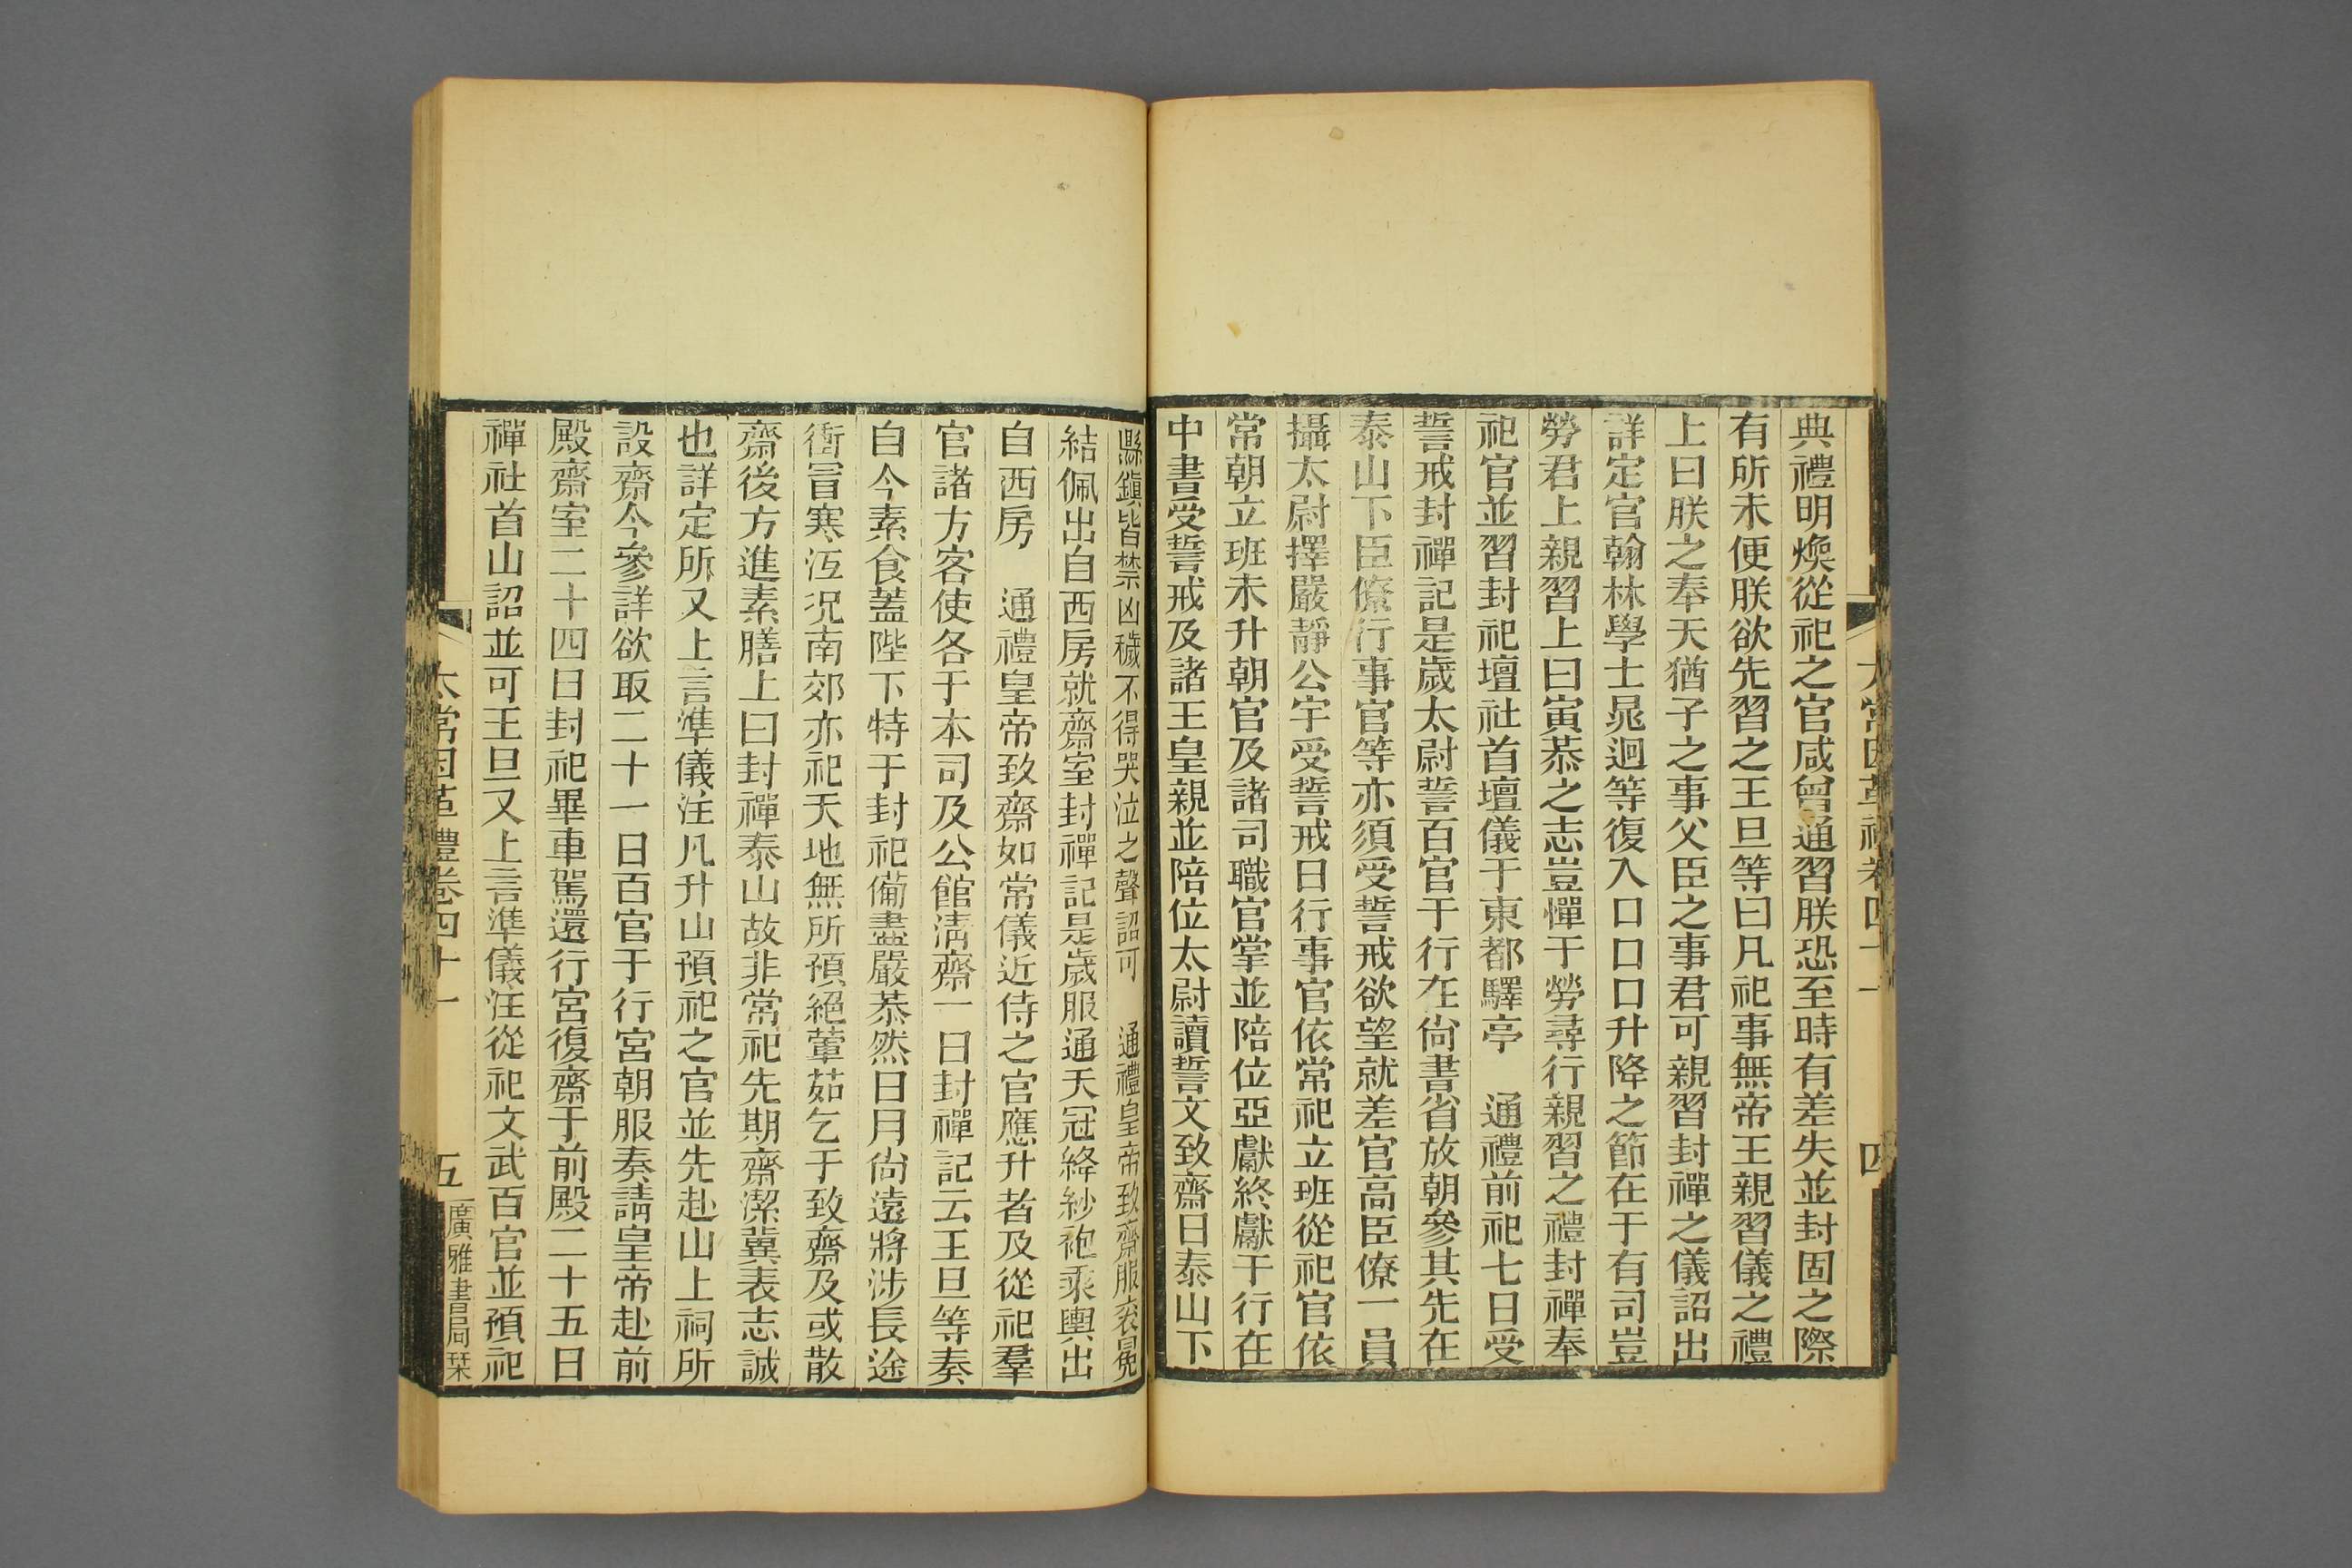 典禮明煥從祀之官咸曾通習朕恐至時有差失並封固之際
有所未便朕欲先習之王旦等曰凡祀事無帝王親習儀之禮
上曰朕之奉天猶子之事父臣之事君可親習封禪之儀詔出
詳定官翰林學士晁迥等復入口口口升降之節在于有司豈
勞君上親習上曰寅恭之志豈憚于勞尋行親習之禮封禪奉
祀官並習封祀壇社首壇儀于東都驛亭　通禮前祀七日受
誓戒封禪記是歲太尉誓百官于行在尚書省放朝參其先在
泰山下臣僚行事官等亦須受誓戒欲望就差官高臣僚一員
攝太尉擇嚴靜公宇受誓戒日行事官依常祀立班從祀官依
常朝立班未升朝官及諸司職官掌並陪位亞獻終獻于行在
中書受誓戒及諸王皇親並陪位太尉讀誓文致齋日泰山下
縣鎮皆禁凶穢不得哭泣之聲詔可　通禮皇帝致齋服袞冕
結佩出自西房就齋室封禪記是歲服通天冠絳紗袍乘輿出
自西房　通禮皇帝致齋如常儀近侍之官應升者及從祀羣
官諸方客使各于本司及公館淸齋一日封禪記云王旦等奏
自今素食蓋陛下特于封祀備盡嚴恭然日月尙遠將涉長途
衝冒寒沍況南郊亦祀天地無所預絕葷茹乞于致齋及或散
齋後方進素膳上曰封禪泰山故非常祀先期齋潔冀表志誠
也詳定所又上言準儀注凡升山預祀之官並先赴山上祠所
設齋今參詳欲取二十一日百官于行宮朝服奏請皇帝赴前
殿齋室二十四日封祀畢車駕還行宮復齋于前殿二十五日
禪社首山詔並可王旦又上言準儀注從祀文武百官並預祀
太常因革禮卷四十一　五　廣雅書局栞